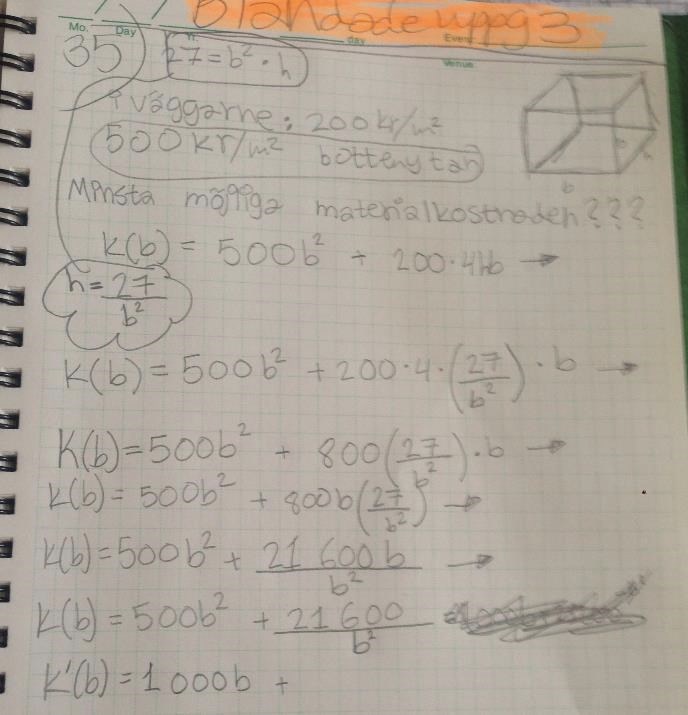 Blandade uppg 3
Mo. Day
day
Event
Venue
35) 27 = b² · h
väggarne: 200 kr/m²
500 kr/m² bottenytan
b
Minsta möjliga materialkostnaden???
K(b) = 500b² + 200·4hb →
h = 27/b²
K(b) = 500b² + 200·4·(27/b²)·b →
K(b) = 500b² + 800(27/b²)·b →
K(b) = 500b² + 800b(27/b²) →
K(b) = 500b² + 21 600b/b² →
K(b) = 500b² + 21 600/b²
K'(b) = 1 000b +